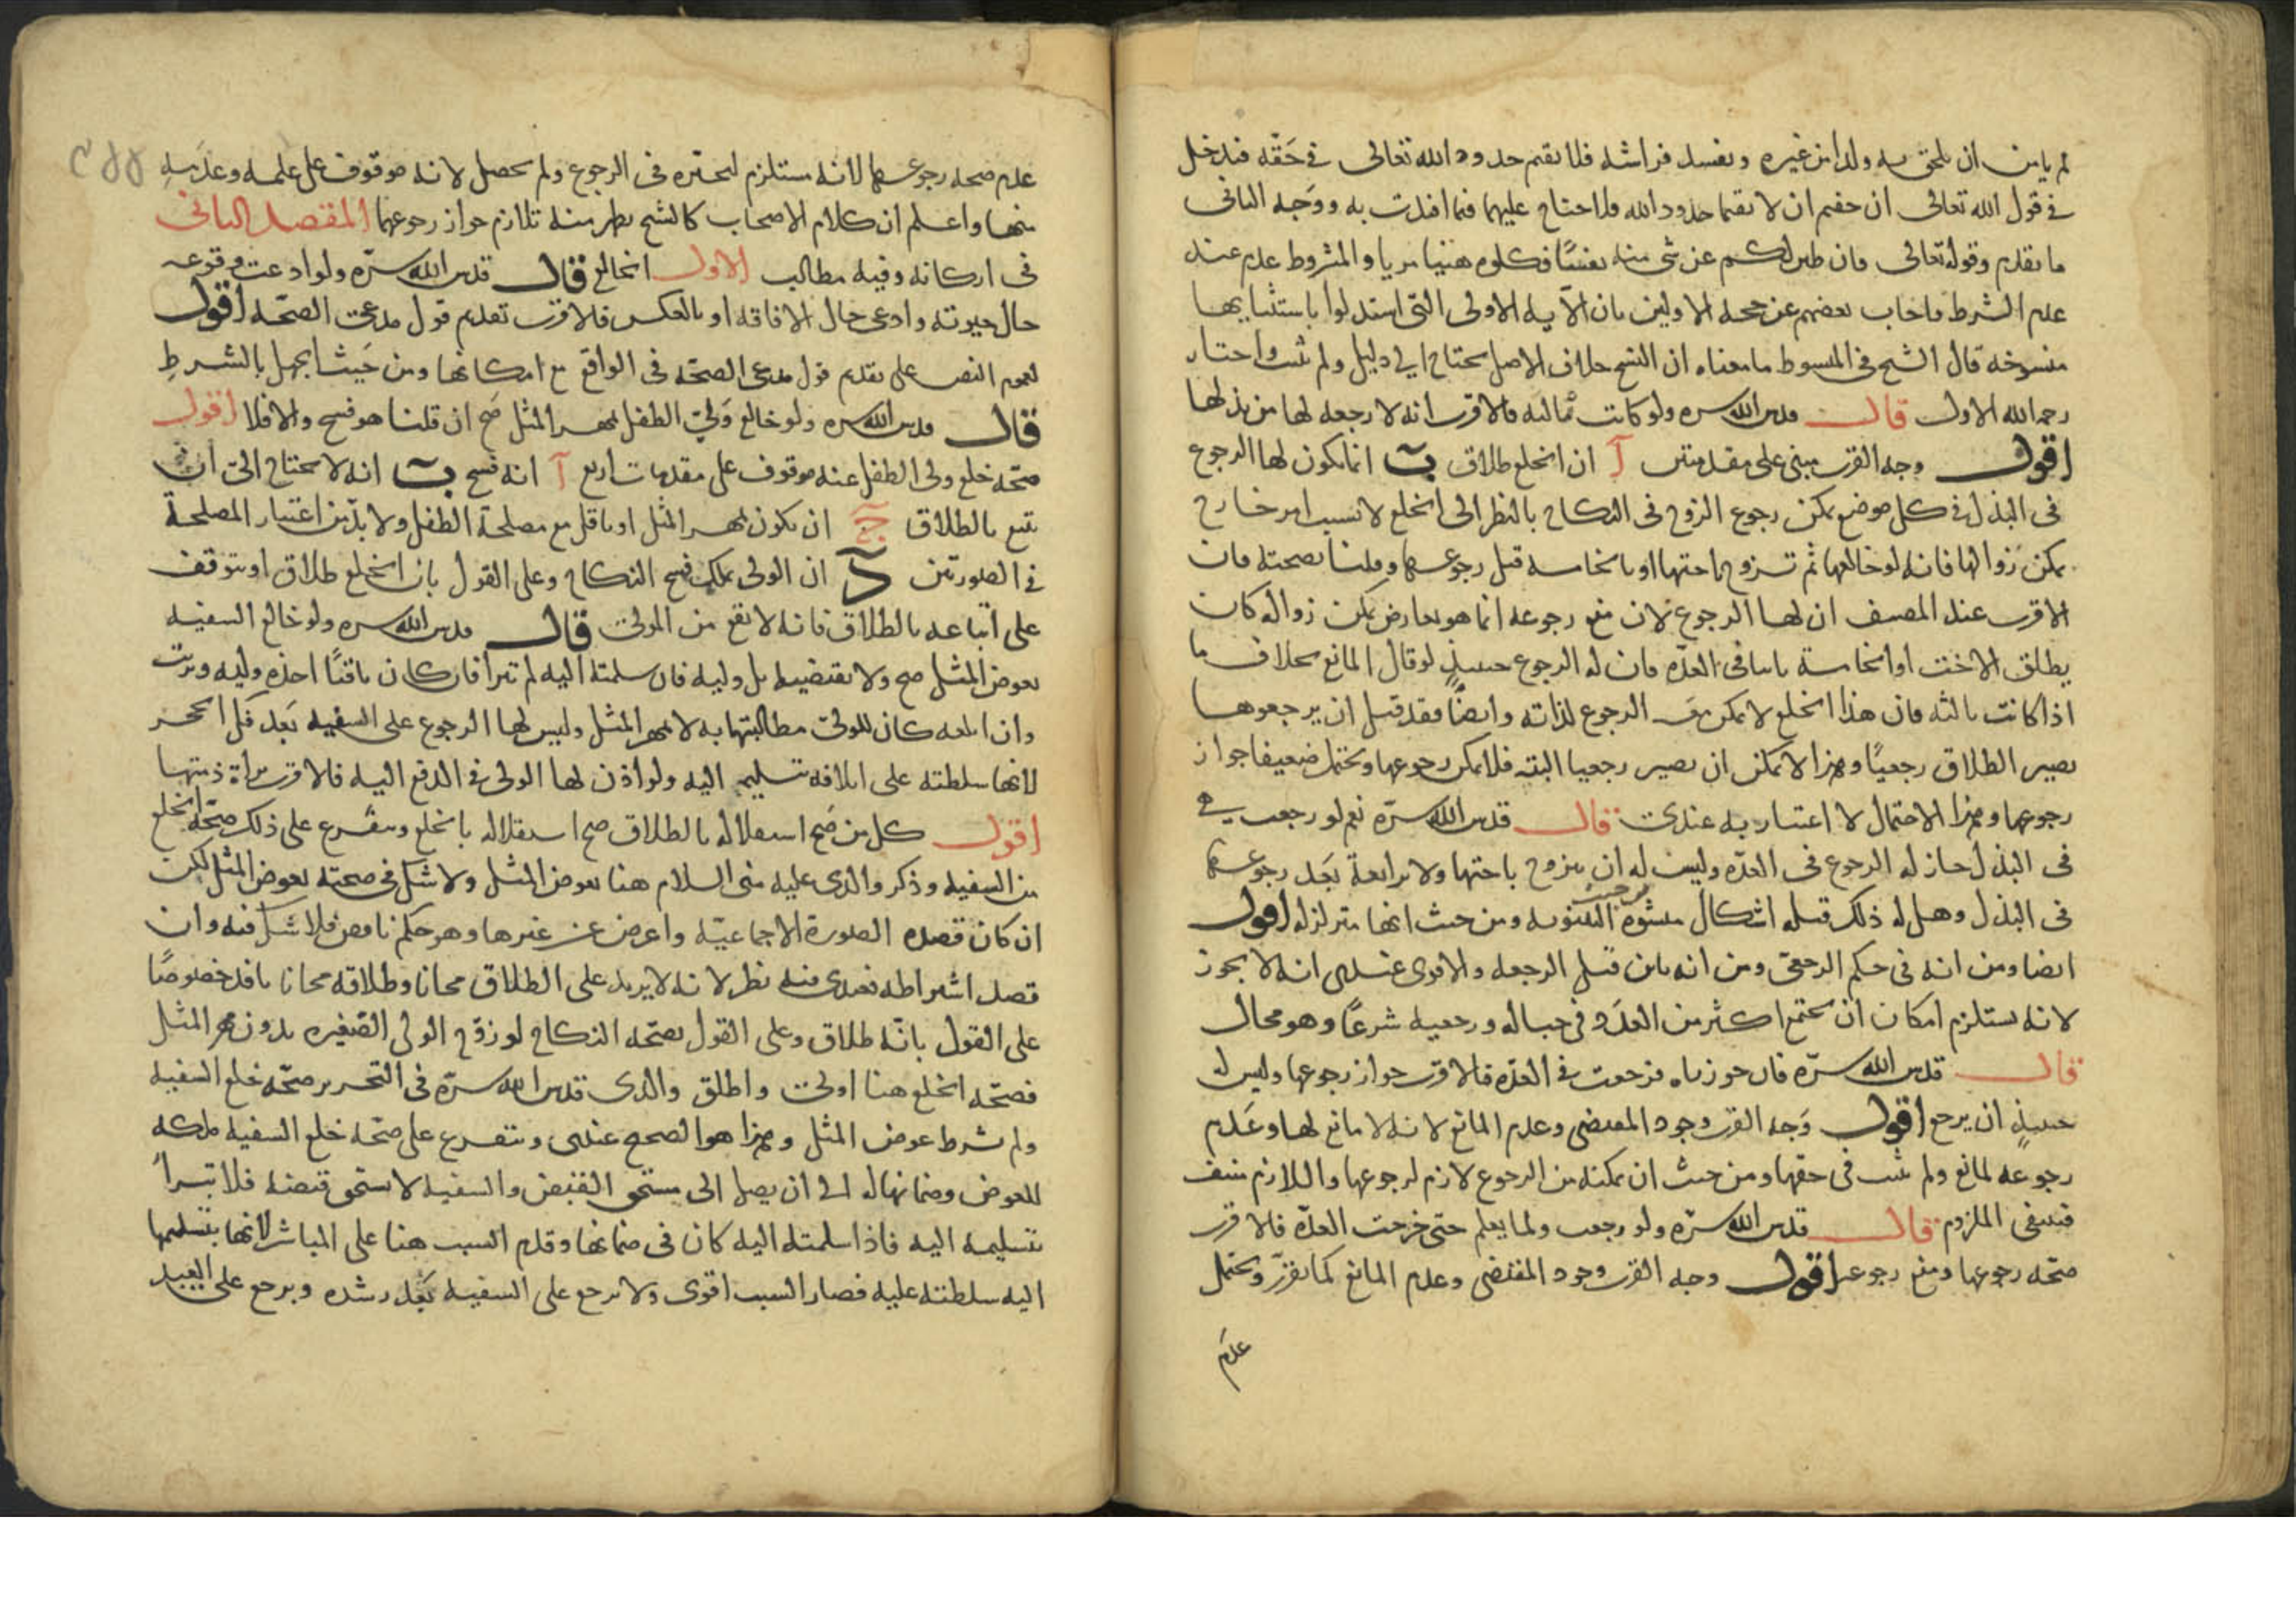 لم يامن ان يلحق به ولدا من غيره ويفسد فراشه فلا يقيم حدود الله تعالى في حقه فيدخل
في قول الله تعالى ان خفتم ان لا يقيما حدود الله فلا جناح عليهما فيما افتدت به ووجه الثاني
ما تقدم وقوله تعالى فان طبن لكم عن شي منه نفسًا فكلوه هنيئا مريا والمشروط عدم عند
عدم الشرط فاجاب بعضهم عن حجة الاولين بان الآية الاولى التي استدلوا باستثنايها
منسوخة قال الشيخ في المبسوط ما معناه ان النسخ خلاف الاصل يحتاج الى دليل ولم يثبت واختار
رحمه الله الاول قال قدس الله سره ولو كانت ثالثه فالاقرب انه لا رجعة لها من بذلها
اقول وجه القرب مبني على مقدمتين آ ان الخلع طلاق ب انما يكون لها الرجوع
في البذل في كل موضع يمكن رجوع الزوج في النكاح بالنظر الى الخلع لا بسبب امر خارج
يمكن زوالها فانه لو خالعها ثم تزوج باختها او بالخامسة قبل رجوعها وقلنا بصحته فان
الاقرب عند المصنف ان لها الرجوع لان منع رجوعه انما هو بعارض يمكن زواله كان
يطلق الاخت او الخامسة باينا في العدة فان له الرجوع حينئذٍ لزوال المانع بخلاف ما
اذا كانت ثالثه فان هذا الخلع لا يمكن فيه الرجوع لذاته وايضًا فقد قيل ان برجوعها
يصير الطلاق رجعيًا وهذا لا يمكن ان يصير رجعيا البته فلا يمكن رجوعها ويحتمل ضعيفا جواز
رجوعها وهذا الاحتمال لا اعتبار به عندي قال قدس الله سرّه نعم لو رجعت في
في البذل جاز له الرجوع في العدّه وليس له ان يتزوج باختها ولا برابعة بَعد رجوعها
في البذل وهل له ذلك قبله اشكال ينشوه من حيث البينونه ومن حيث انها متزلزله اقول
ايضا ومن انه في حكم الرجعي ومن انه باين قبل الرجعه والاقوى عندي انه لا يجوز
لانه يستلزم امكان ان يجتمع اكثر من العدَد في حباله ورجعيه شرعًا وهو محال
قال قدس الله سرّه فان جوزناه فرجعت في العدّه فالاقرب جواز رجوعها وليس له
حينئذٍ ان يرجع اقول وَجه القرب وجود المقتضي وعدم المانع لانه لا مانع لها وعَدم
رجوعه لمانع ولم يثبت في حقها ومن حيث ان تمكنه من الرجوع لازم لرجوعها واللازم منتف
فينتفي الملزوم قال قدس الله سرّه ولو رجعت ولما يعلم حتى خرجت العدّه فالاقرب
صحّه رجوعها ومنع رجوعه اقول وجه القرب وجود المقتضي وعدم المانع كما تقرّر ويحتمل
عدم
عدم صحة رجوعها لانه مستلزم لتخيّره في الرجوع ولم يحصل لانه موقوف على علمه وعلمه
منها واعلم ان كلام الاصحاب كالشيخ يظهر منه تلازم جواز رجوعهما المقصد الثاني
في اركانه وفيه مطالب الاول الخالع قال قدس الله سرّه ولو ادعت وقوعه
حال جنونه وادعى حال الافاقه او بالعكس فالاقرب تقديم قول مدعي الصحّه اقول
لعموم النص على تقديم قول مدعي الصحّه في الواقع مع امكانها ومن حَيث الجهل بالشرطِ
قال قدس الله سره ولو خالع وَليّ الطفل بمهر المثل صَح ان قلنا هو فسخ والا فلا اقول
صحّة خلع ولي الطفل عنه موقوف على مقدمات اربع آ انه فسخ ب انه لا يحتاج الى ان
يتبع بالطلاق ج ان يكون بمهر المثل او باقل مع مصلحة الطفل ولا بدّ من اعتبار المصلحة
في الصورتين د ان الولي يملك فسخ النكاح وعلى القول بان الخلع طلاق او يتوقف
على اتباعه بالطلاق فانه لا يقع من الولي قال قدس الله سره ولو خالع السفيه
بعوض المثل صح ولا يقبضه بل وليه فان سلمته اليه لم تبرا فان كان باقيًا اخذه وليه وبرت
وان اتلفه كان للولي مطالبتها به لا بمهر المثل وليس لها الرجوع على السفيه بَعد فكّ الحجر
لانها سلطته على اتلافه بتسليمه اليه ولو اذن لها الولي في الدفع اليه فالاقرب براة ذمتها
اقول كل من صَح استقلاله بالطلاق صح استقلاله بالخلع ويتفرع على ذلك صحّة الخلع
من السفيه وذكر والدي عليه مني السلام هنا بعوض المثل ولا شك في صحته بعوض المثل لكن
ان كان قصده الصورة الاجماعيّه واعرض عن غيرها وهو حكم ناقص فلا شك فيه وان
قصد اشتراطه فعندي فيه نظر لانه لا يزيد على الطلاق مجانا وطلاقه مجانا نافذ خصوصًا
على القول بانّه طلاق وعلى القول بصحّه النكاح لو زوّج الولي الصّغيره بدون مهر المثل
فصحّه الخلع هنا اولى واطلق والدي قدس الله سرّه في التحرير صحّه خلع السفيه
ولم يشرط عوض المثل وهذا هو الصحيح عندي ويتفرع على صحّه خلع السفيه ملكه
للعوض وضمانها له الى ان يصل الى مستحق القبض والسفيه لا يستحق قبضه فلا تبرأ
بتسليمه اليه فاذا سلمته اليه كان في ضمانها وقدم السبب هنا على المباشر لانها بتسليمها
اليه سلطته عليه فصار السبب اقوى ولا ترجع على السفيه بَعد رشده ويرجع على العبد